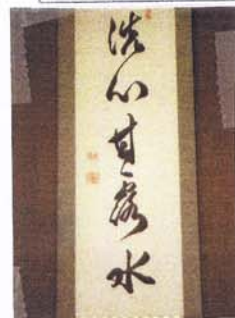 洗心甘露水